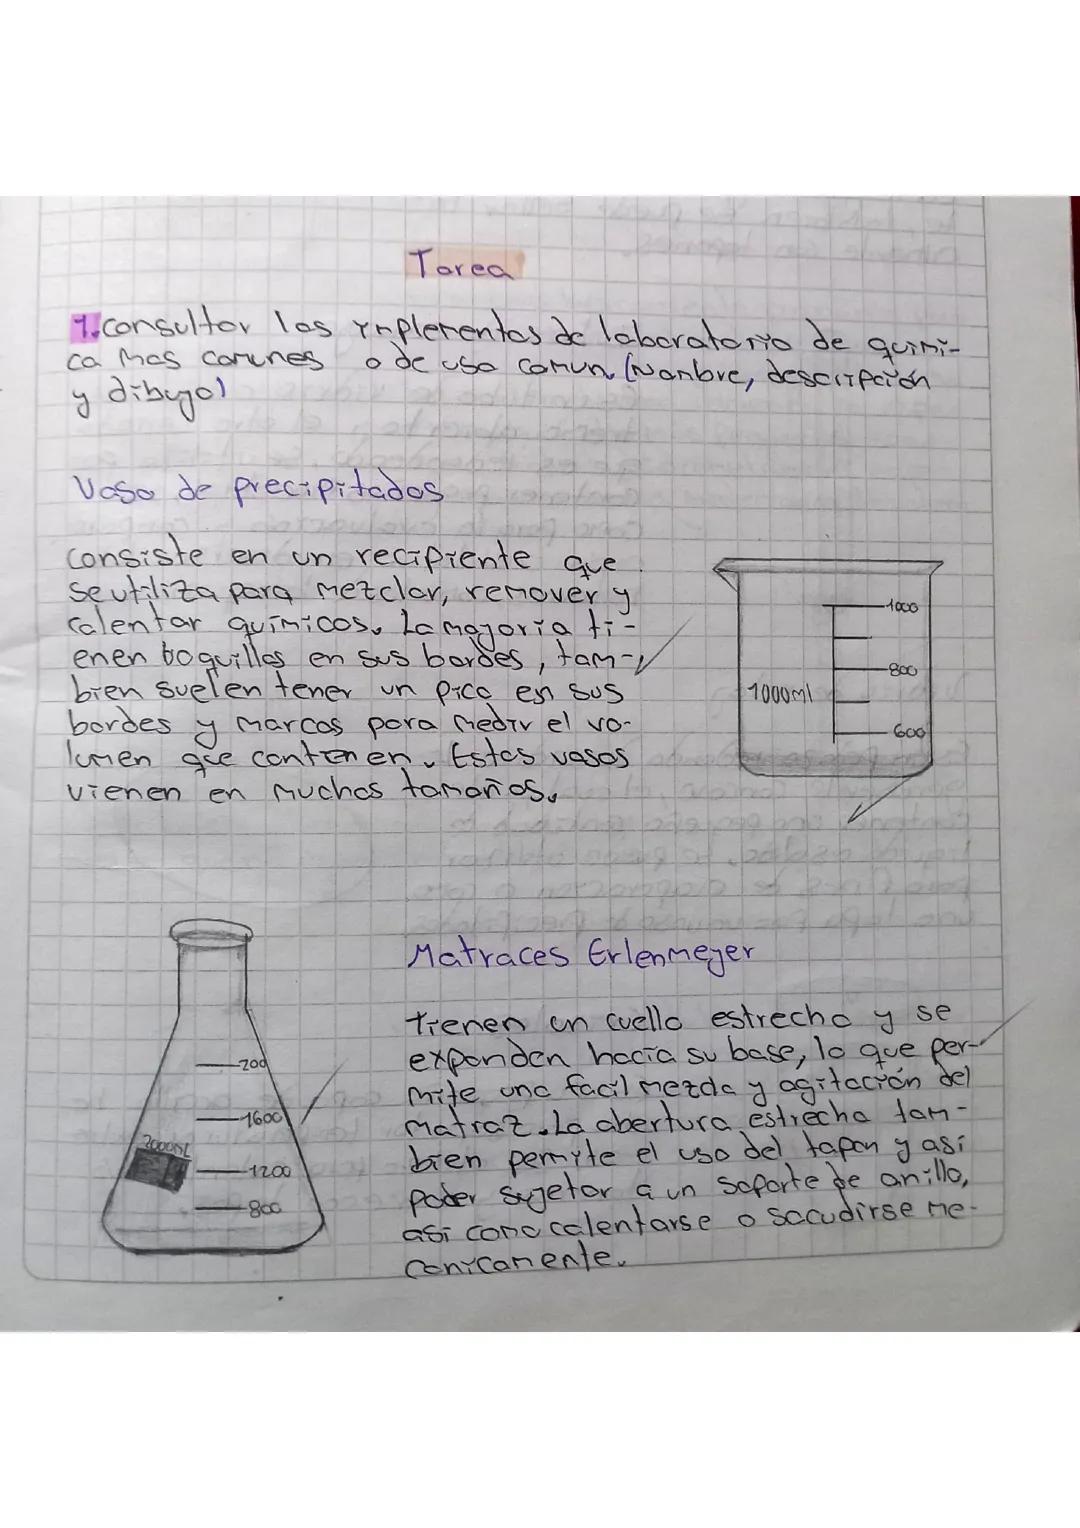 Tarea
1. consultar los implementos de laboratorio de quimi-
ca mas comunes o de uso comun. (Nombre, descripción
y dibujo)
Vaso de precipitados
consiste en un recipiente que
se utiliza para mezclar, remover y
calentar químicos. La mayoría ti-
enen boquillas en sus bordes, tam-
bien suelen tener un pico en sus
bordes y marcas para medir el vo-
lumen que contienen. Estos vasos
vienen en muchos tamaños.
1000
800
1000ml
600
Matraces Erlenmeyer
tienen un cuello estrecho y se
expanden hacia su base, lo que per-
mite una facil mezcla y agitación del
matraz. La abertura estrecha tam-
bien permite el uso del tapon y asi
poder sujetar a un soporte de anillo,
asi como calentarse o sacudirse me-
canicamente.
200
1600
2000ML
1200
800